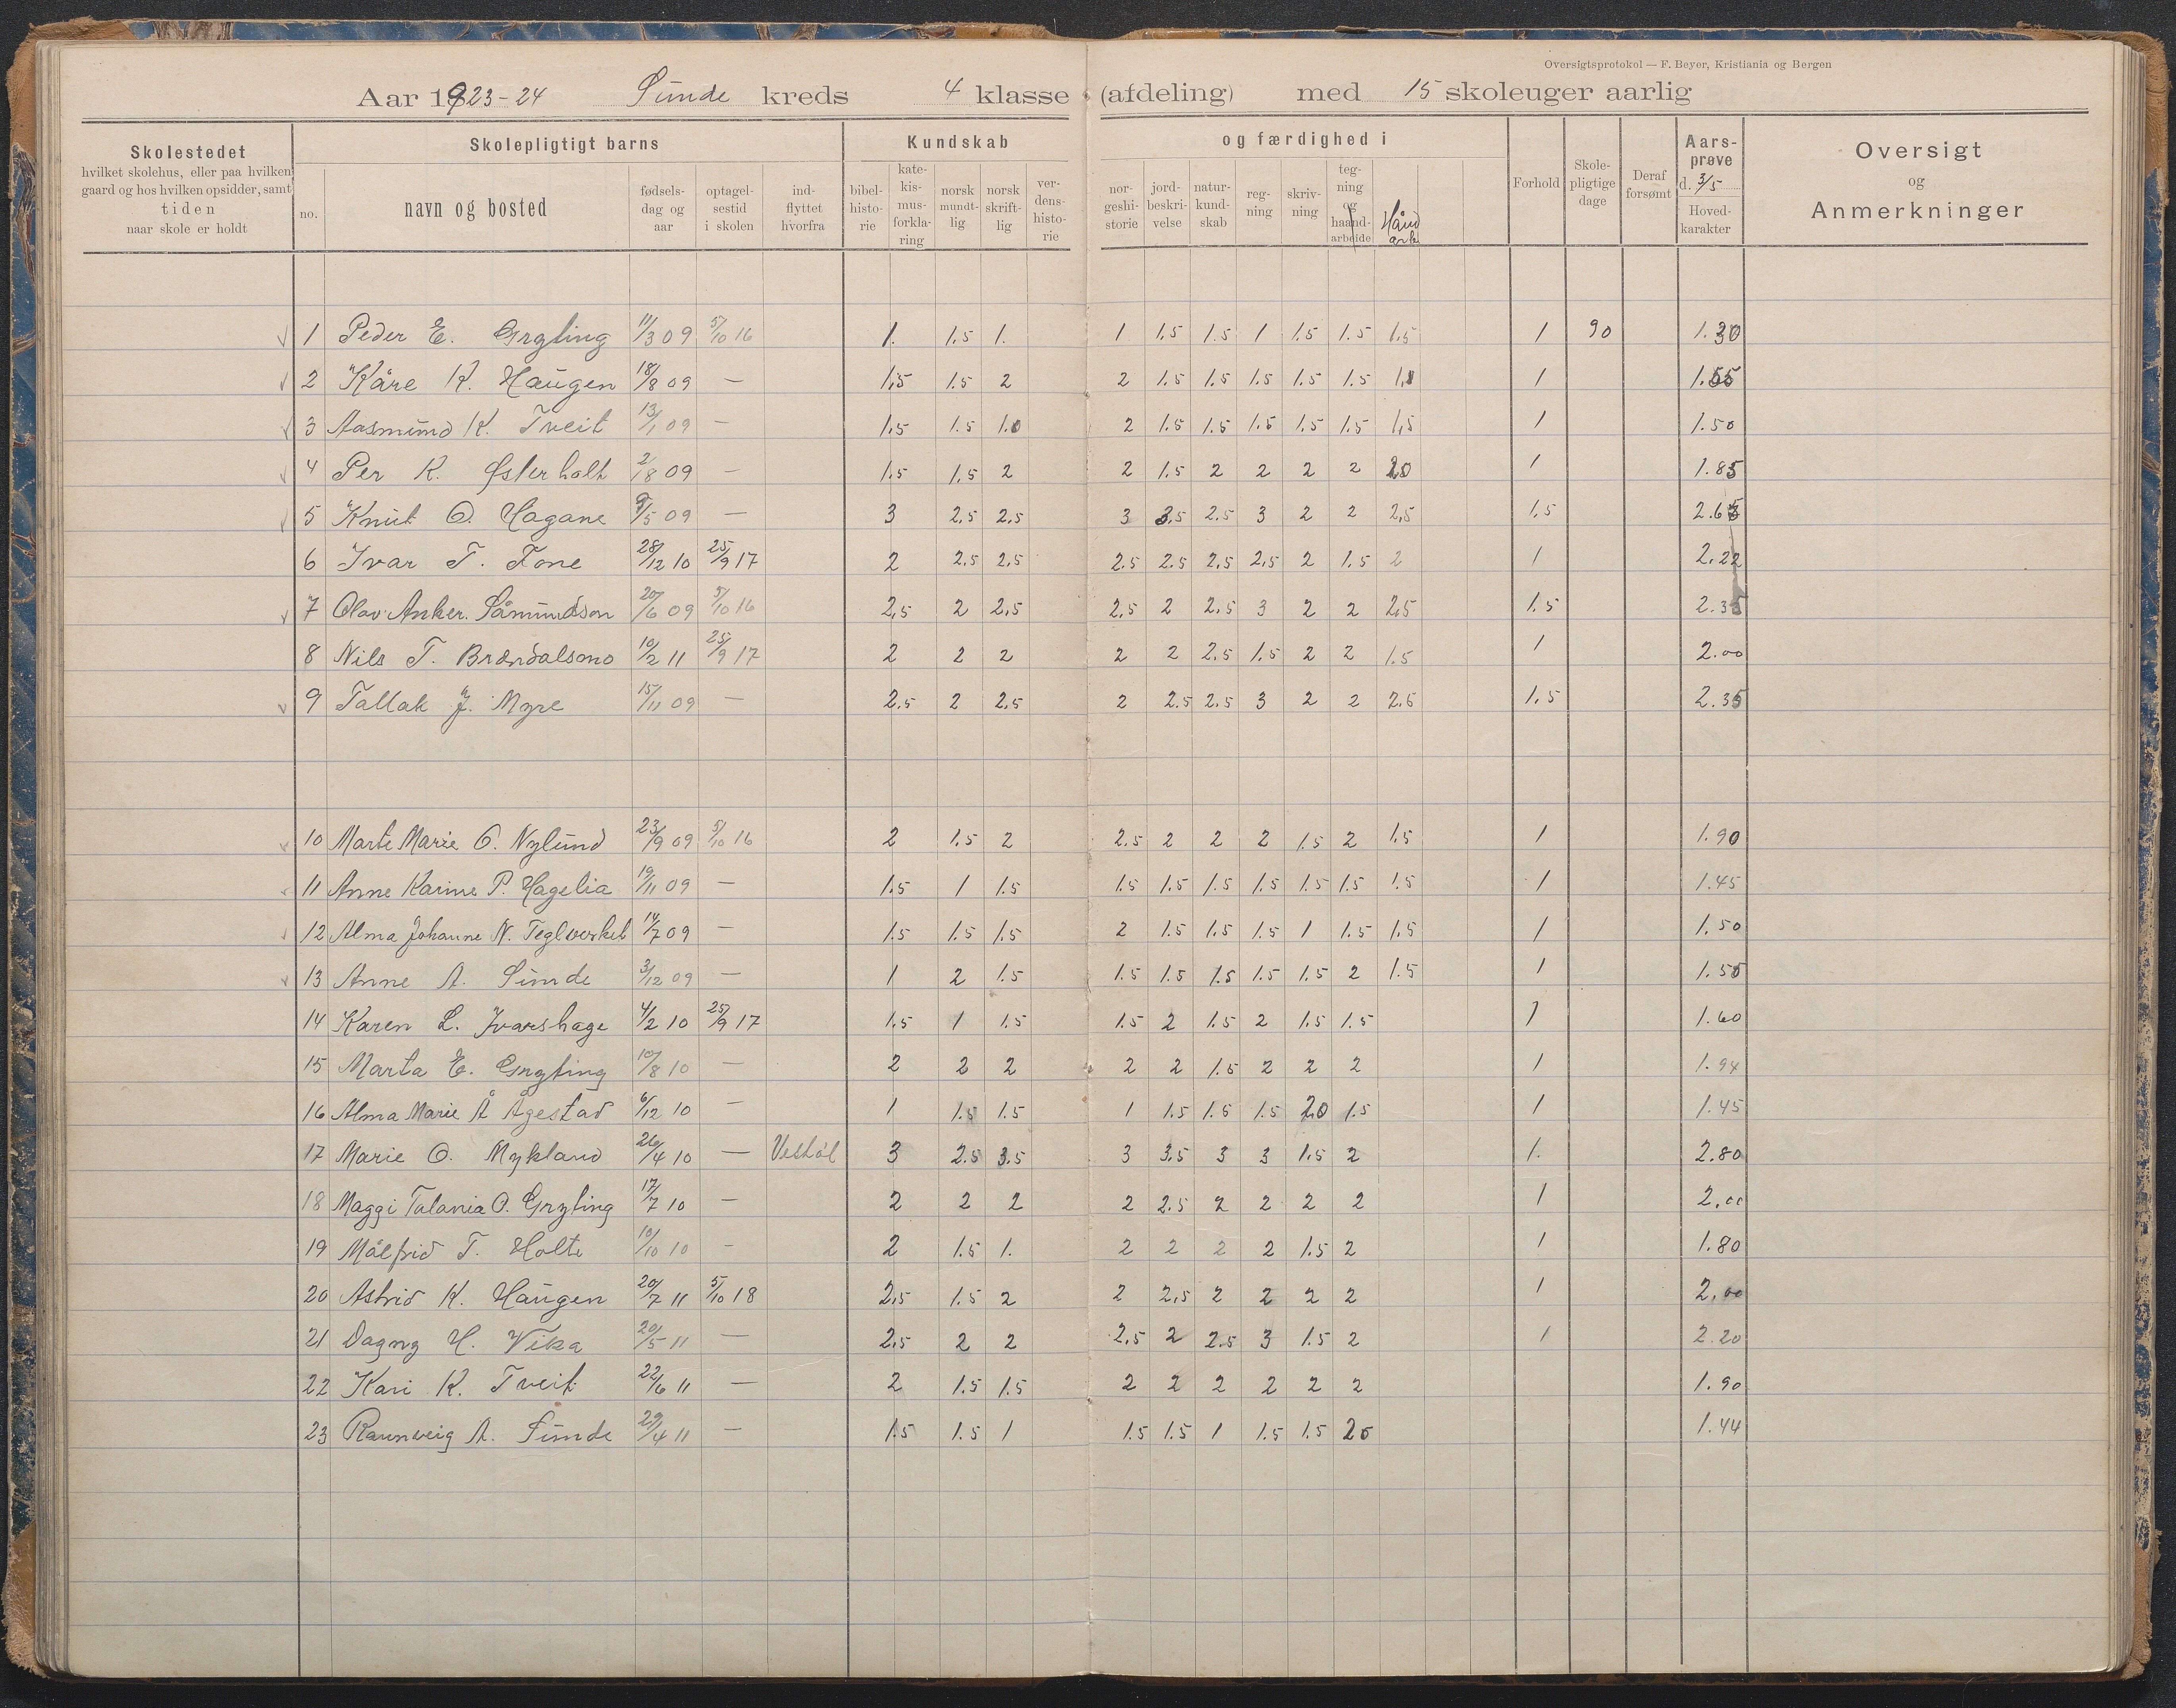 Oversigtsprotokol — F. Beyer, Kristiania og Bergen
Aar 1923-24 Sunde kreds 4 klasse (afdeling) med 15 skoleuger aarlig
Skolestedet
hvilket skolehus, eller paa hvilken
gaard og hos hvilken opsidder, samt
tiden
naar skole er holdt
Skolepligtigt barns
no.
navn og bosted
fødsels-
dag og
aar
optagel-
sestid
i skolen
ind-
flyttet
hvorfra
Kundskab
bibel-
histo-
rie
kate-
kis-
mus-
forkla-
ring
norsk
mundt-
lig
norsk
skrift-
lig
ver-
dens-
histo-
rie
og færdighed i
nor-
geshi-
storie
jord-
beskri-
velse
natur-
kund-
skab
reg-
ning
skriv-
ning
teg-
ning
og
haand-
arbeide
Hånd
arb.
Forhold
Skole-
pligtige
dage
Deraf
forsømt
Aars-
prøve
d. 3/5
Hoved-
karakter
Oversigt
og
Anmerkninger
1 Peder E. Grytting 11/3 09 5/10 16 1. 1.5 1. 1 1.5 1.5 1 1.5 1.5 1.5 1 90 1.30
2 Kåre K. Haugen 18/8 09 — 1.5 1.5 2 2 1.5 1.5 1.5 1.5 1.5 1 1.55
3 Aasmund K. Tveit 13/1 09 — 1.5 1.5 1.0 2 1.5 1.5 1.5 1.5 1.5 1.5 1 1.50
4 Per K. Østerholt 2/8 09 — 1.5 1.5 2 2 1.5 2 2 2 2 2.0 1 1.85
5 Knut O. Hagane 9/5 09 — 3 2.5 2.5 3 3.5 2.5 3 2 2 2.5 1.5 2.65
6 Ivar T. Tone 28/12 10 25/9 17 2 2.5 2.5 2.5 2.5 2.5 2.5 2 1.5 2 1 2.22
7 Olav Anker. Såmundson 20/6 09 5/10 16 2.5 2 2.5 2.5 2 2.5 3 2 2 2.5 1.5 2.35
8 Nils T. Brændalsmo 10/2 11 25/9 17 2 2 2 2 2 2.5 1.5 2 2 1.5 1 2.00
9 Tallak J. Myre 15/11 09 — 2.5 2 2.5 2 2.5 2.5 3 2 2 2.5 1.5 2.35
10 Marte Marie O. Nylund 23/9 09 5/10 16 2 1.5 2 2.5 2 2 2 1.5 2 1.5 1 1.90
11 Anne Karine P. Hagelia 19/11 09 — 1.5 1 1.5 1.5 1.5 1.5 1.5 1.5 1.5 1.5 1 1.45
12 Alma Johanne N. Teglverket 14/7 09 — 1.5 1.5 1.5 2 1.5 1.5 1.5 1 1.5 1.5 1 1.50
13 Anne A. Sunde 3/12 09 — 1 2 1.5 1.5 1.5 1.5 1.5 1.5 2 1.5 1 1.55
14 Karen L. Ivarshage 4/2 10 25/9 17 1.5 1 1.5 1.5 2 1.5 2 1.5 1.5 1 1.60
15 Marta E. Grytting 10/8 10 — 2 2 2 2 2 1.5 2 2 2 1 1.94
16 Alma Marie Å Ågestad 6/12 10 — 1 1.5 1.5 1 1.5 1.5 1.5 2.0 1.5 1 1.45
17 Marie O. Mykland 26/4 10 — Vestøl 3 2.5 3.5 3 3.5 3 3 1.5 2 1. 2.80
18 Maggi Talania O. Grytting 17/7 10 — 2 2 2 2 2.5 2 2 2 2 1 2.00
19 Målfrid T. Holte 10/10 10 — 2 1.5 1. 2 2 2 2 1.5 2 1 1.80
20 Astrid K. Haugen 20/7 11 5/10 18 2.5 1.5 2 2 2.5 2 2 2 2 1 2.00
21 Dagny H. Vika 20/5 11 — 2.5 2 2 2.5 2 2.5 3 1.5 2 1 2.20
22 Kari K. Tveit 22/6 11 — 2 1.5 1.5 2 2 2 2 2 2 1.90
23 Raunveig A. Sunde 29/4 11 — 1.5 1.5 1 1.5 1.5 1 1.5 1.5 2.0 1.44